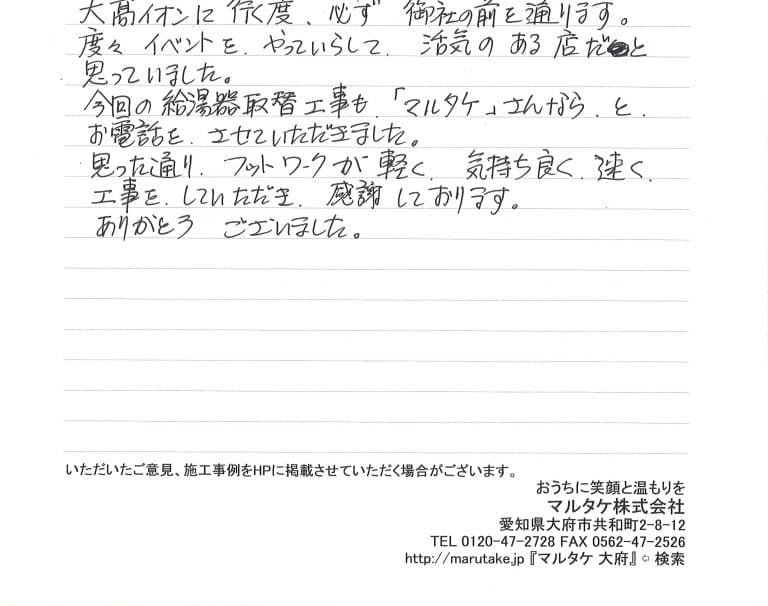 大高イオンに行く度、必ず 御社の前を通ります。
度々イベントを、やっていらして、活気のある店だと
思っていました。
今回の給湯器取替工事も、「マルタケ」さんなら、と、
お電話を、させていただきました。
思った通り、フットワークが軽く、気持ち良く、速く、
工事を、していただき、感謝しております。
ありがとう ございました。
いただいたご意見、施工事例をHPに掲載させていただく場合がございます。
おうちに笑顔と温もりを
マルタケ株式会社
愛知県大府市共和町2-8-12
TEL 0120-47-2728 FAX 0562-47-2526
http://marutake.jp『マルタケ 大府』⇦ 検索